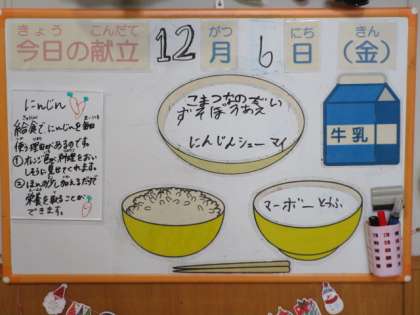 きょう こんだて がつ にち きん
今日の献立 12月 6日 (金)
にんじん
給食で、にんじんを毎日
使う理由があるのです。
①オレンジ色で、料理をおい
しそうに見せてくれます。
②ほんの少し加えるだけで
栄養を取ることが
できます。
こまつなの
ずそぼろあえ
にんじんシューマイ
牛乳
マーボーとうふ